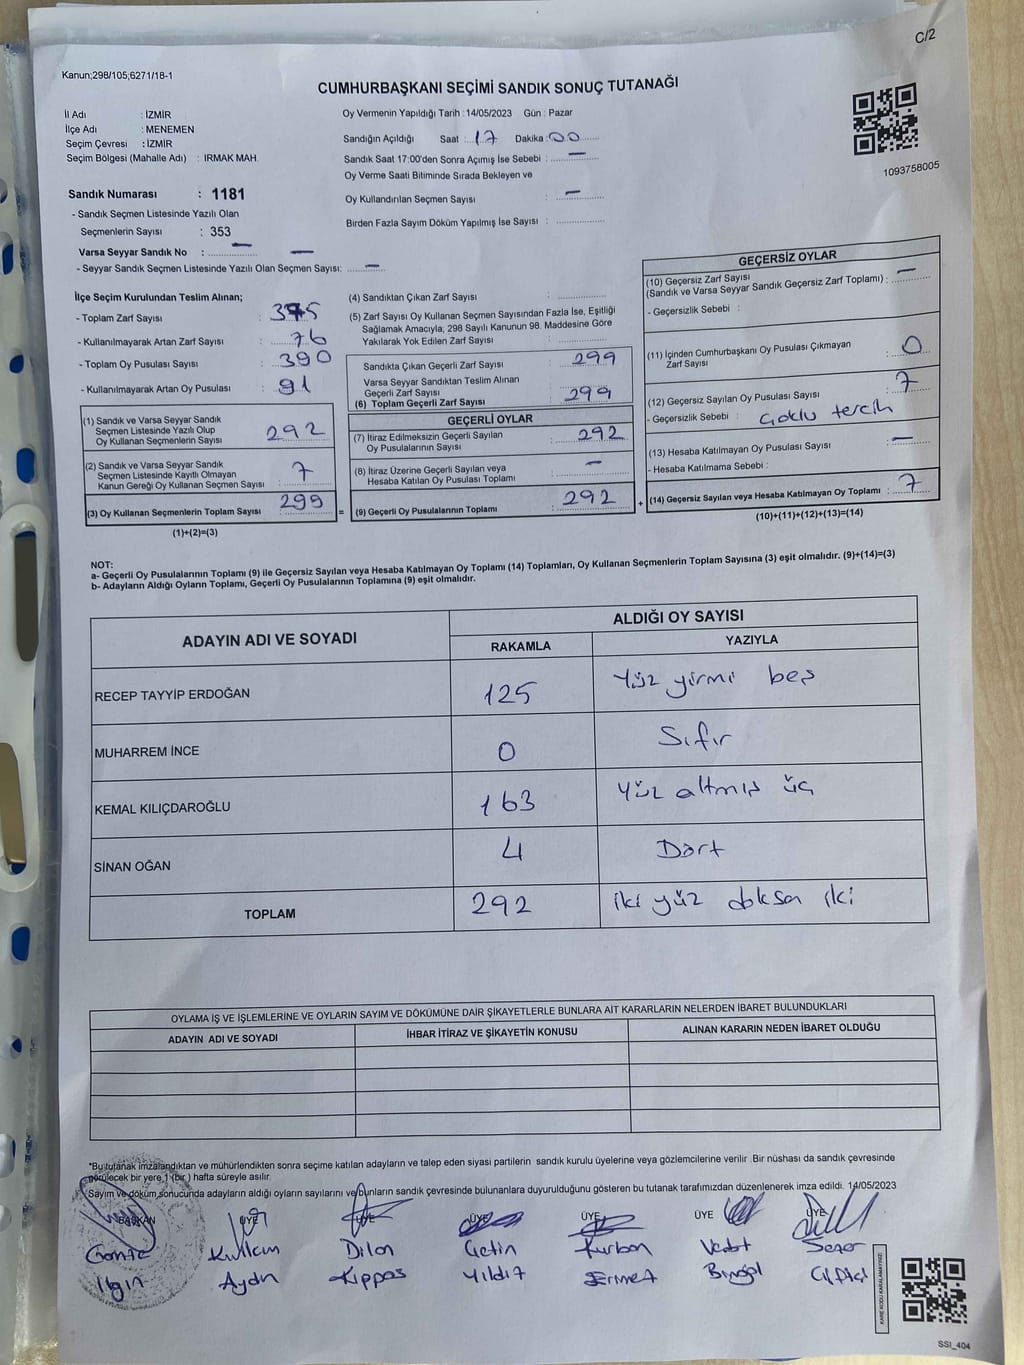 C/2
Kanun;298/105;6271/18-1
CUMHURBAŞKANI SEÇİMİ SANDIK SONUÇ TUTANAĞI
İl Adı : İZMİR
İlçe Adı : MENEMEN
Seçim Çevresi : İZMİR
Seçim Bölgesi (Mahalle Adı) : IRMAK MAH.
Sandık Numarası : 1181
- Sandık Seçmen Listesinde Yazılı Olan
Seçmenlerin Sayısı : 353
Varsa Seyyar Sandık No : —
- Seyyar Sandık Seçmen Listesinde Yazılı Olan Seçmen Sayısı: —
Oy Vermenin Yapıldığı Tarih : 14/05/2023 Gün : Pazar
Sandığın Açıldığı Saat : 17 Dakika : 00
Sandık Saat 17:00'den Sonra Açımış İse Sebebi : —
Oy Verme Saati Bitiminde Sırada Bekleyen ve
Oy Kullandırılan Seçmen Sayısı : —
Birden Fazla Sayım Döküm Yapılmış İse Sayısı :
1093758005
İlçe Seçim Kurulundan Teslim Alınan;
- Toplam Zarf Sayısı : 375
- Kullanılmayarak Artan Zarf Sayısı : 76
- Toplam Oy Pusulası Sayısı : 390
- Kullanılmayarak Artan Oy Pusulası : 91
(1) Sandık ve Varsa Seyyar Sandık
Seçmen Listesinde Yazılı Olup
Oy Kullanan Seçmenlerin Sayısı : 292
(2) Sandık ve Varsa Seyyar Sandık
Seçmen Listesinde Kayıtlı Olmayan
Kanun Gereği Oy Kullanan Seçmen Sayısı : 7
(3) Oy Kullanan Seçmenlerin Toplam Sayısı : 299
(1)+(2)=(3)
(4) Sandıktan Çıkan Zarf Sayısı :
(5) Zarf Sayısı Oy Kullanan Seçmen Sayısından Fazla İse, Eşitliği
Sağlamak Amacıyla; 298 Sayılı Kanunun 98. Maddesine Göre
Yakılarak Yok Edilen Zarf Sayısı :
Sandıkta Çıkan Geçerli Zarf Sayısı : 299
Varsa Seyyar Sandıktan Teslim Alınan
Geçerli Zarf Sayısı
(6) Toplam Geçerli Zarf Sayısı : 299
GEÇERLİ OYLAR
(7) İtiraz Edilmeksizin Geçerli Sayılan
Oy Pusulalarının Sayısı : 292
(8) İtiraz Üzerine Geçerli Sayılan veya
Hesaba Katılan Oy Pusulası Toplamı : —
= (9) Geçerli Oy Pusulalarının Toplamı : 292 +
GEÇERSİZ OYLAR
(10) Geçersiz Zarf Sayısı
(Sandık ve Varsa Seyyar Sandık Geçersiz Zarf Toplamı) : —
- Geçersizlik Sebebi :
(11) İçinden Cumhurbaşkanı Oy Pusulası Çıkmayan
Zarf Sayısı : 0
(12) Geçersiz Sayılan Oy Pusulası Sayısı : 7
- Geçersizlik Sebebi : Çoklu tercih
(13) Hesaba Katılmayan Oy Pusulası Sayısı : —
- Hesaba Katılmama Sebebi :
(14) Geçersiz Sayılan veya Hesaba Katılmayan Oy Toplamı : 7
(10)+(11)+(12)+(13)=(14)
NOT:
a- Geçerli Oy Pusulalarının Toplamı (9) ile Geçersiz Sayılan veya Hesaba Katılmayan Oy Toplamı (14) Toplamları, Oy Kullanan Seçmenlerin Toplam Sayısına (3) eşit olmalıdır. (9)+(14)=(3)
b- Adayların Aldığı Oyların Toplamı, Geçerli Oy Pusulalarının Toplamına (9) eşit olmalıdır.
ADAYIN ADI VE SOYADI ALDIĞI OY SAYISI
RAKAMLA YAZIYLA
RECEP TAYYİP ERDOĞAN 125 Yüz yirmi beş
MUHARREM İNCE 0 Sıfır
KEMAL KILIÇDAROĞLU 163 Yüz altmış üç
SİNAN OĞAN 4 Dört
TOPLAM 292 iki yüz doksan iki
OYLAMA İŞ VE İŞLEMLERİNE VE OYLARIN SAYIM VE DÖKÜMÜNE DAİR ŞİKAYETLERLE BUNLARA AİT KARARLARIN NELERDEN İBARET BULUNDUKLARI
ADAYIN ADI VE SOYADI İHBAR İTİRAZ VE ŞİKAYETİN KONUSU ALINAN KARARIN NEDEN İBARET OLDUĞU
*Bu tutanak imzalandıktan ve mühürlendikten sonra seçime katılan adayların ve talep eden siyasi partilerin sandık kurulu üyelerine veya gözlemcilerine verilir .Bir nüshası da sandık çevresinde
görülecek bir yere 1 (bir ) hafta süreyle asılır.
Sayım ve döküm sonucunda adayların aldığı oyların sayılarını ve bunların sandık çevresinde bulunanlara duyurulduğunu gösteren bu tutanak tarafımızdan düzenlenerek imza edildi. 14/05/2023
BAŞKAN ÜYE ÜYE ÜYE ÜYE ÜYE ÜYE
Dilan Çetin Kurban Vedat Sezer
Ilgın Aydın Yıldız Bingöl Çiftçi
KARE KODU KARALAMAYINIZ!
SSI_404